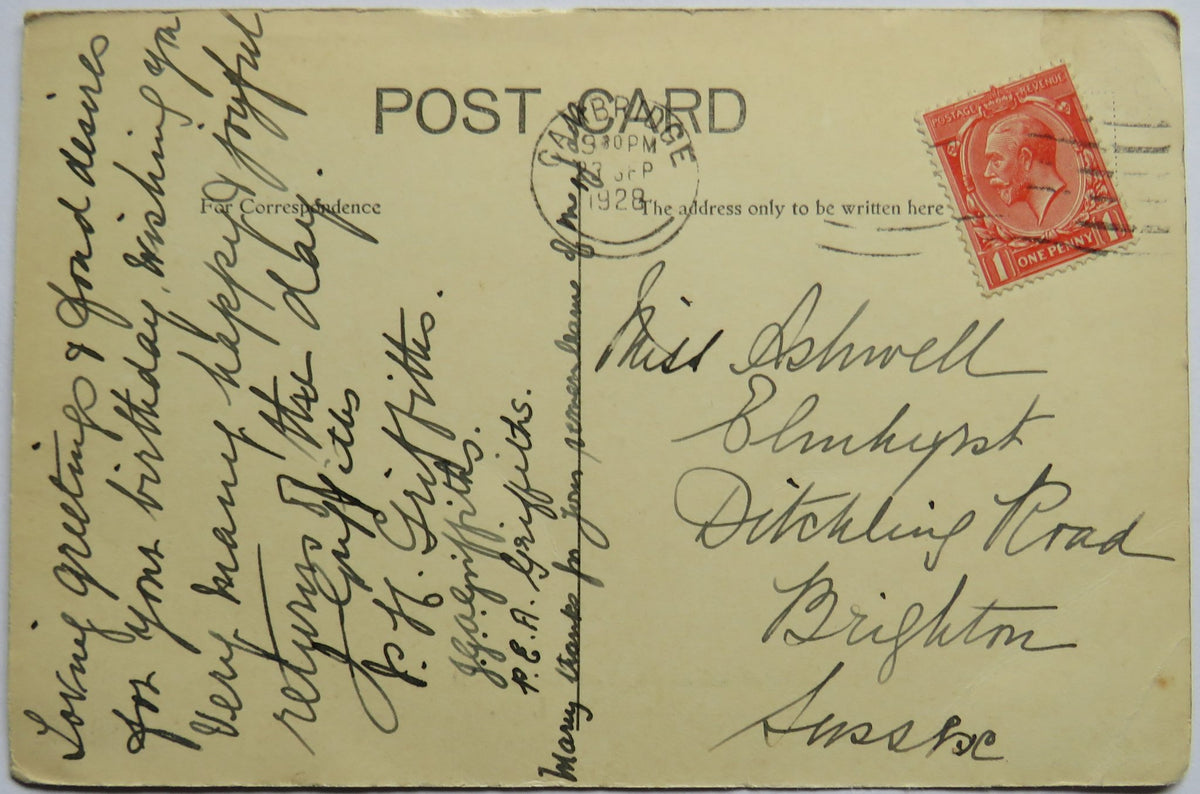 POST CARD
For Correspondence
The address only to be written here
CAMBRIDGE
30 PM
SEP
1928
POSTAGE REVENUE
1 ONE PENNY 1
Loving greetings & fond desires
for your birthday, wishing you
Very many happy & joyful
returns of the day.
Griffiths
H. Griffiths.
Griffiths.
P.E.A. Griffiths.
Many thanks for your remembrance of me
Miss Ashwell
Elmhurst
Ditchling Road
Brighton
Sussex